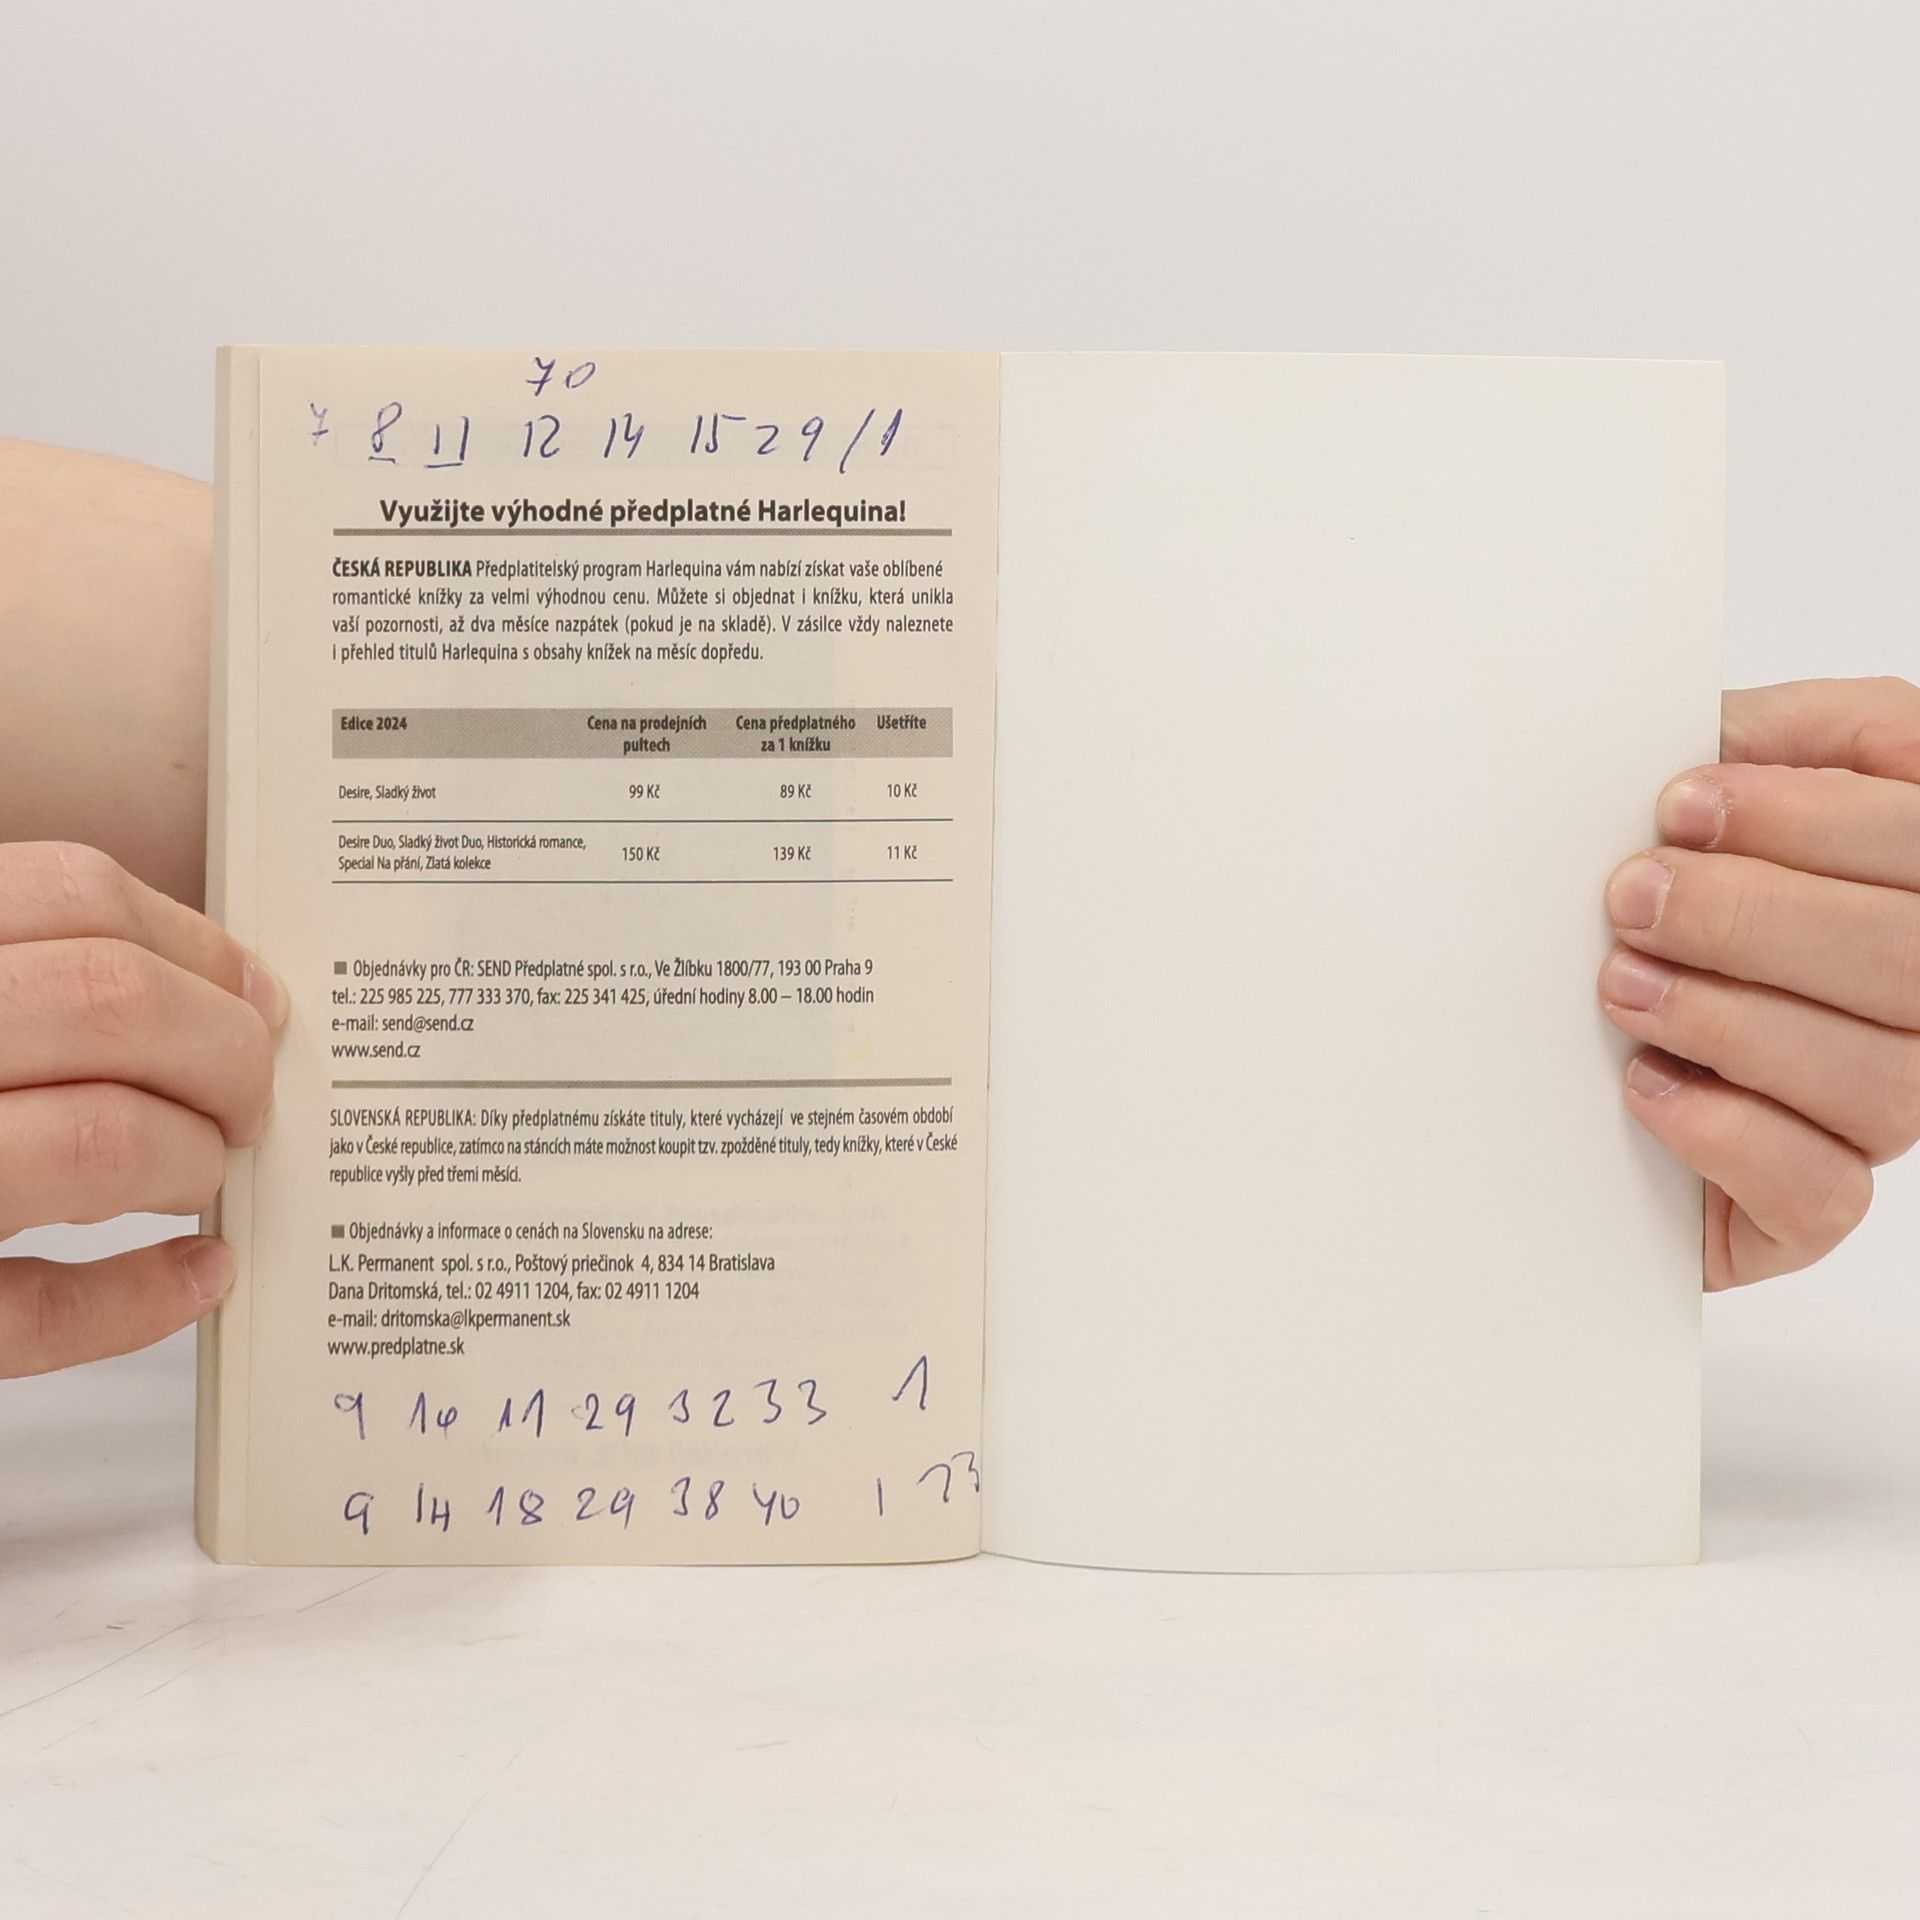 70
7 8 11 12 14 15 29 / 1
Využijte výhodné předplatné Harlequina!
ČESKÁ REPUBLIKA Předplatitelský program Harlequina vám nabízí získat vaše oblíbené
romantické knížky za velmi výhodnou cenu. Můžete si objednat i knížku, která unikla
vaší pozornosti, až dva měsíce nazpátek (pokud je na skladě). V zásilce vždy naleznete
i přehled titulů Harlequina s obsahy knížek na měsíc dopředu.
Edice 2024 Cena na prodejních Cena předplatného Ušetříte
pultech za 1 knížku
Desire, Sladký život 99 Kč 89 Kč 10 Kč
Desire Duo, Sladký život Duo, Historická romance,
Special Na přání, Zlatá kolekce 150 Kč 139 Kč 11 Kč
■ Objednávky pro ČR: SEND Předplatné spol. s r.o., Ve Žlíbku 1800/77, 193 00 Praha 9
tel.: 225 985 225, 777 333 370, fax: 225 341 425, úřední hodiny 8.00 – 18.00 hodin
e-mail: send@send.cz
www.send.cz
SLOVENSKÁ REPUBLIKA: Díky předplatnému získáte tituly, které vycházejí ve stejném časovém období
jako v České republice, zatímco na stáncích máte možnost koupit tzv. zpožděné tituly, tedy knížky, které v České
republice vyšly před třemi měsíci.
■ Objednávky a informace o cenách na Slovensku na adrese:
L.K. Permanent spol. s r.o., Poštový priečinok 4, 834 14 Bratislava
Dana Dritomská, tel.: 02 4911 1204, fax: 02 4911 1204
e-mail: dritomska@lkpermanent.sk
www.predplatne.sk
9 11 29 32 33 1
9 14 18 29 38 40 1